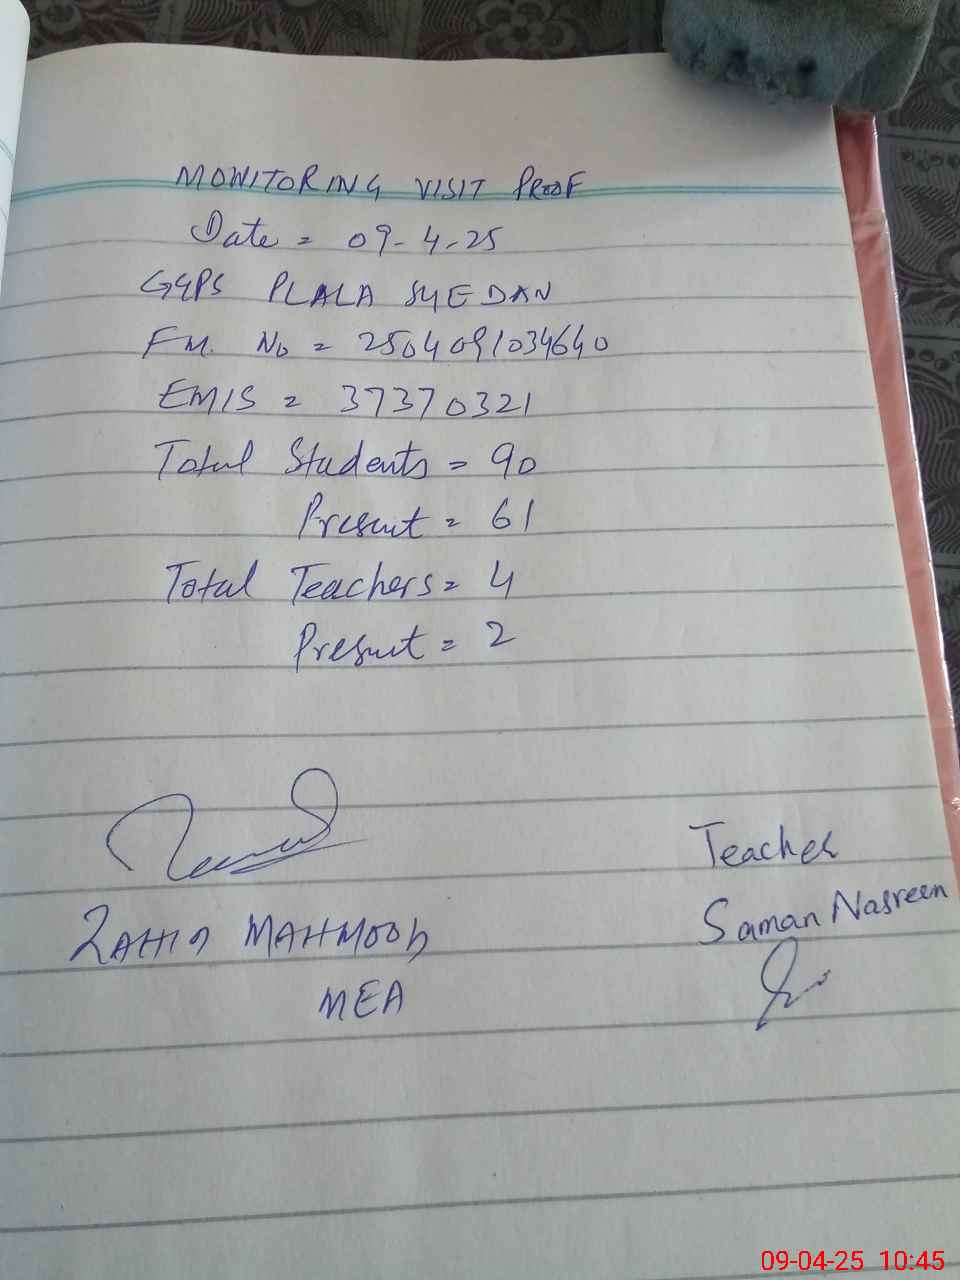 MONITORING VISIT PROOF
Date = 09-4-25
GGPS PLALA SYEDAN
FM. No = 2504091034640
EMIS = 37370321
Total Students = 90
Present = 61
Total Teachers = 4
Present = 2
ZAHID MAHMOOD
MEA
Teacher
Saman Nasreen
09-04-25 10:45